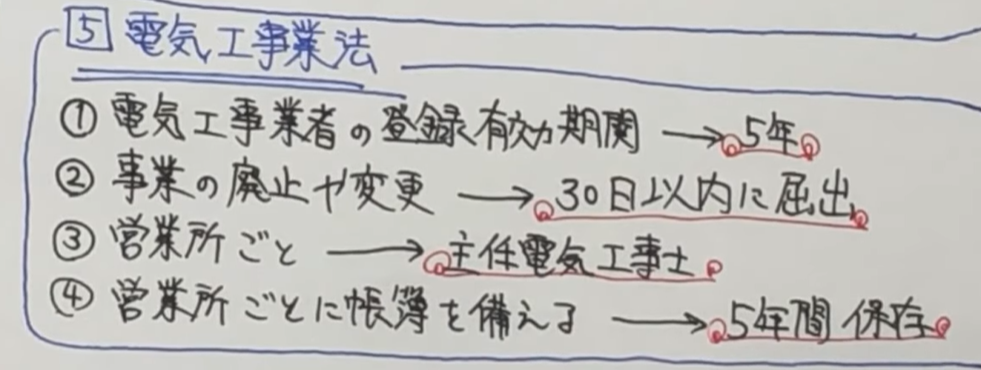 5 電気工事業法
① 電気工事業者の登録有効期間 → 5年
② 事業の廃止や変更 → 30日以内に届出
③ 営業所ごと → 主任電気工事士
④ 営業所ごとに帳簿を備える → 5年間保存